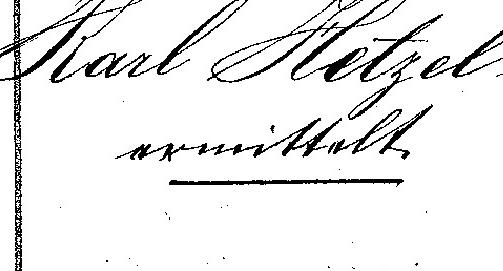 Karl Hetzel
ermittelt.